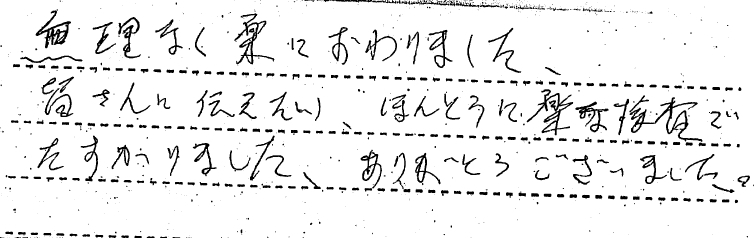 無理なく楽におわりました、
皆さんに伝えたい、ほんとうに楽な検査で
たすかりました、ありがとうございました。